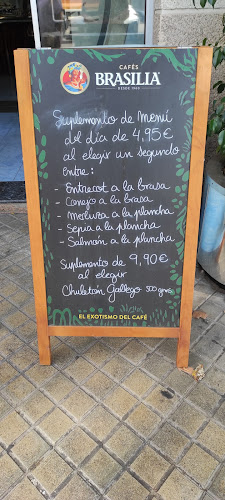 CAFÉS
BRASILIA
DESDE 1928
Suplemento de Menú
del día de 4,95€
al elegir un segundo
Entre:
- Entrecot a la brasa
- Conejo a la brasa
- Merluza a la plancha
- Sepia a la plancha
- Salmón a la plancha
Suplemento de 9,90€
al elegir
Chuletón Gallego 500 grms
EL EXOTISMO DEL CAFÉ